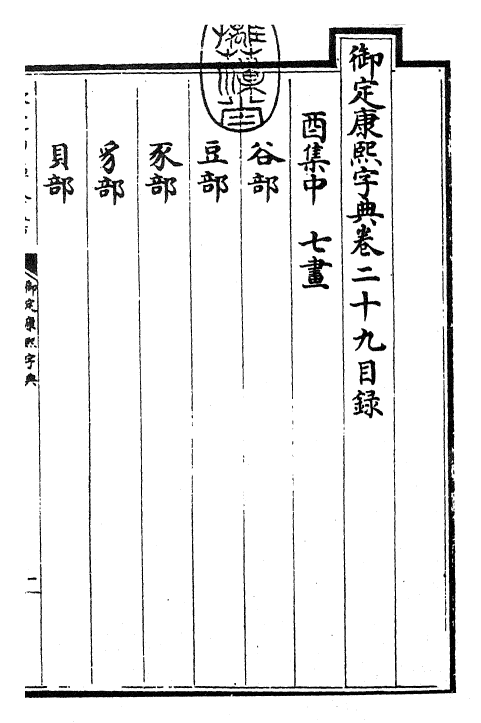 御定康熙字典卷二十九目録
酉集中　七畫
谷部
豆部
豕部
豸部
貝部
御定康熙字典